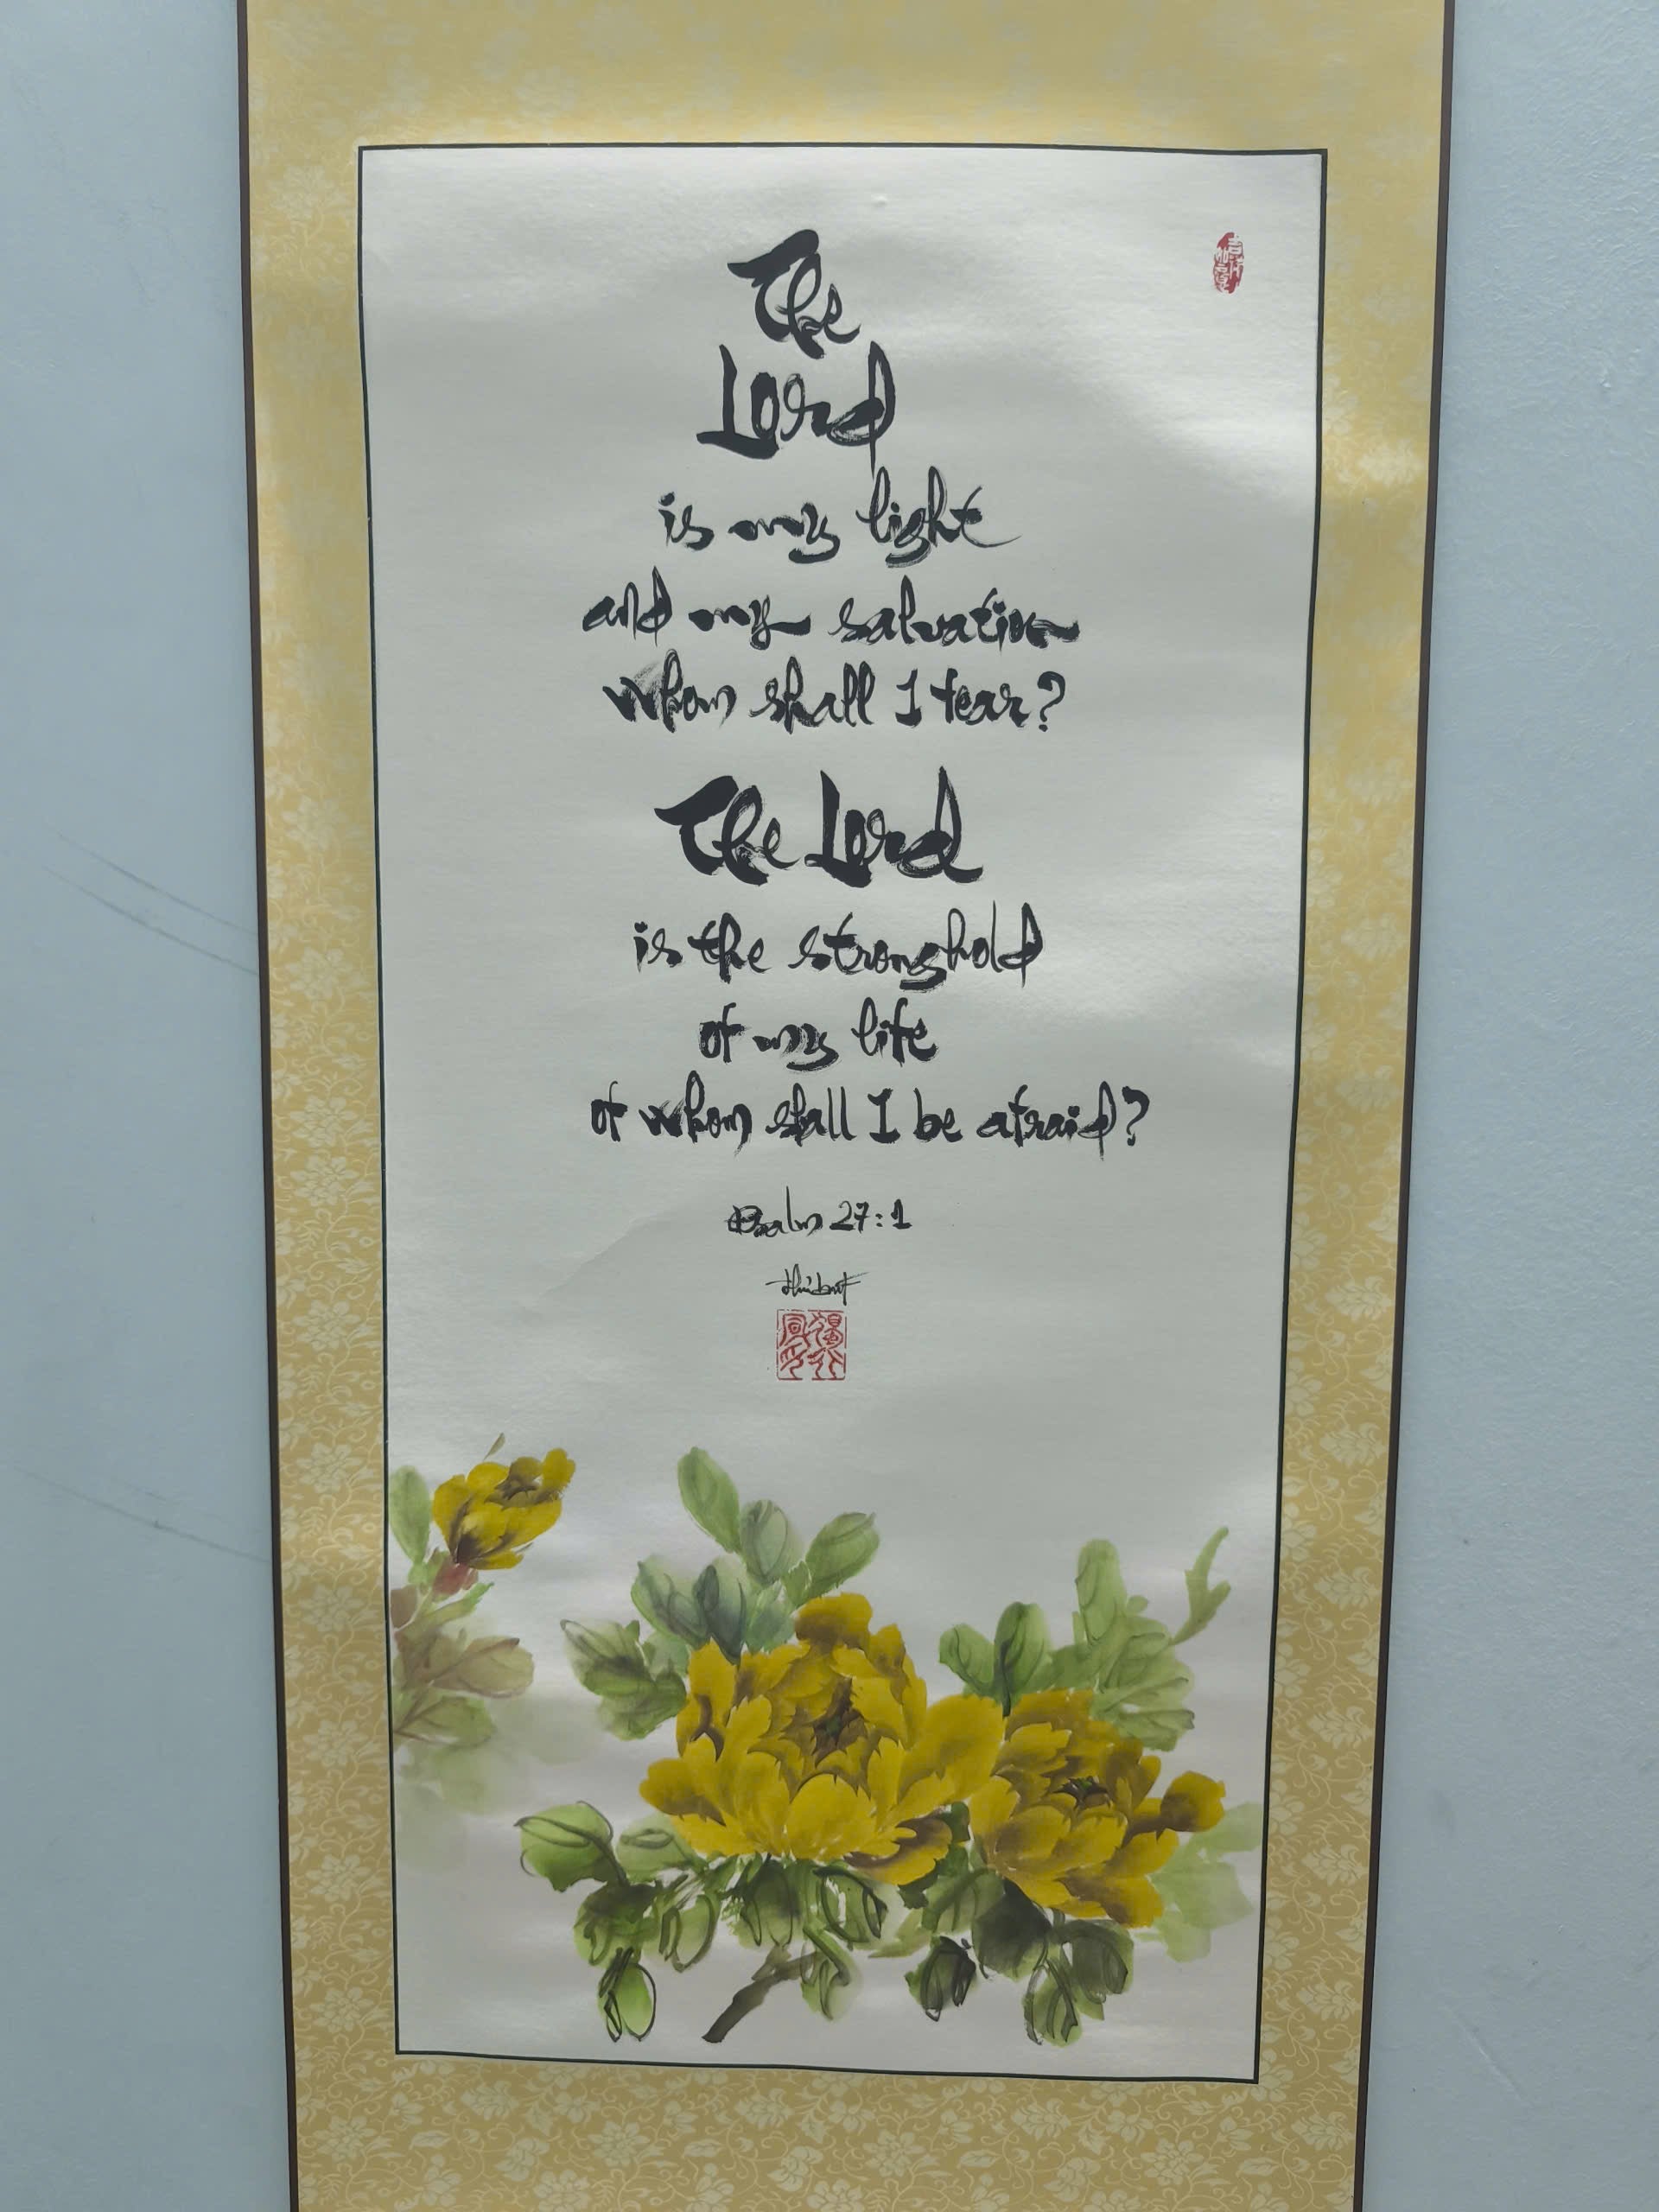 The
Lord
is my light
and my salvation
whom shall I fear?
The Lord
is the stronghold
of my life
of whom shall I be afraid?
Psalm 27:1